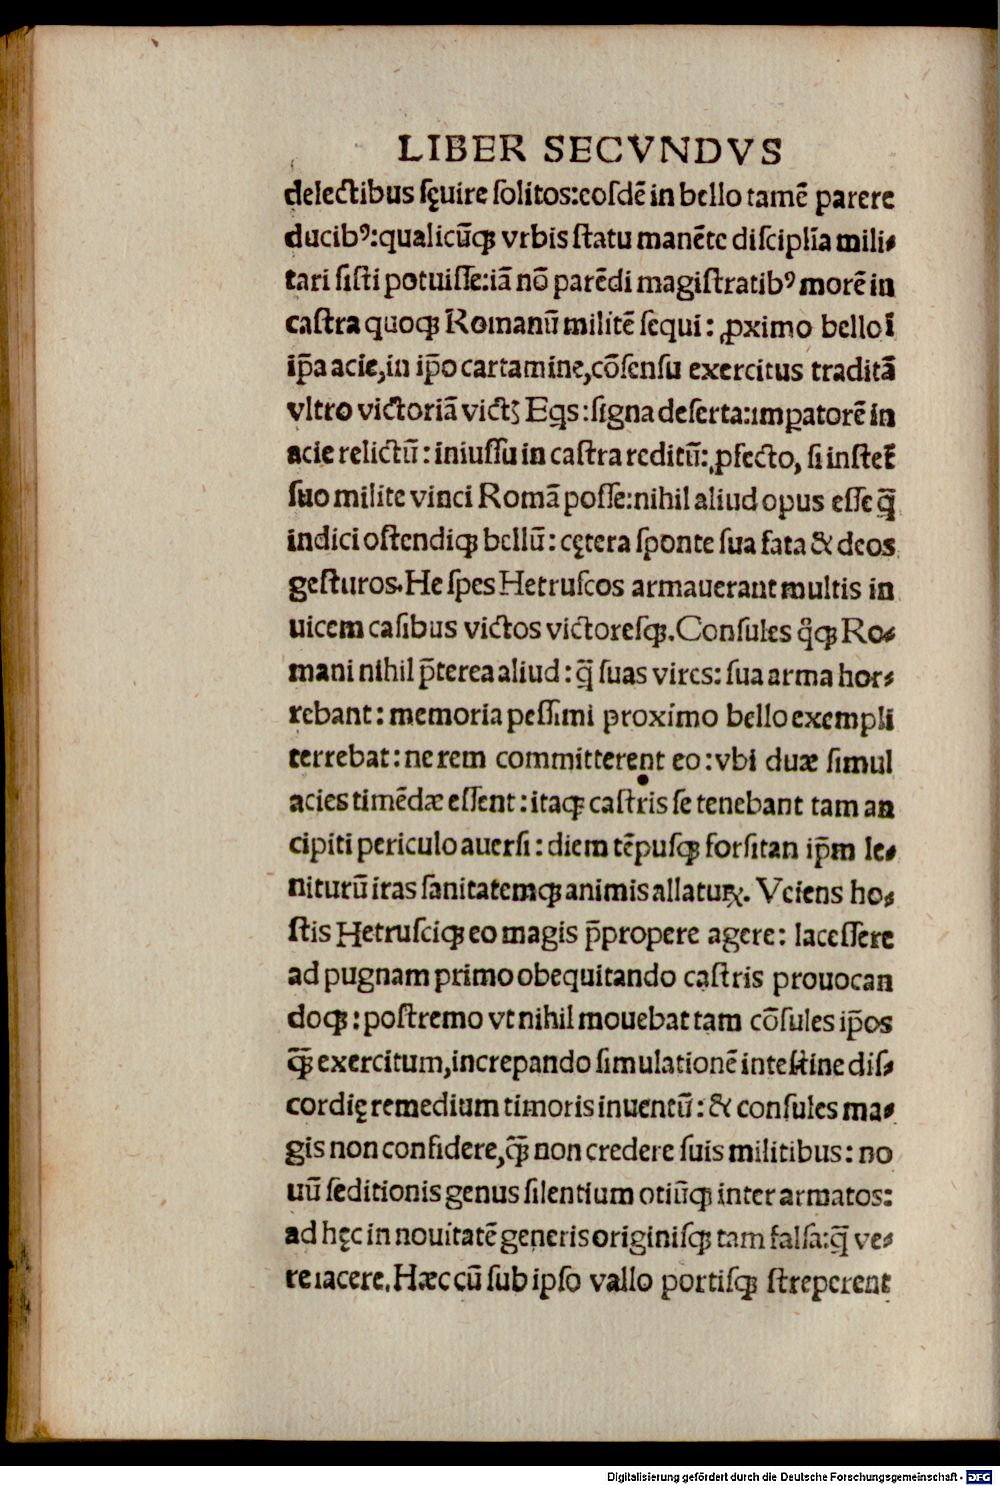 LIBER SECVNDVS
delectibus sęuire solitos:eosdē in bello tamē parere
ducibꝰ:qualicūqꝫ vrbis statu manēte disciplīa mili⸗
tari sisti potuisse:iā nō parēdi magistratibꝰ morē in
castra quoqꝫ Romanū militē sequi: ꝓximo bello ī
ip̄a acie,in ip̄o cartamine,cōsensu exercitus traditā
vltro victoriā victꝫ Eqs:signa deserta:impatorē in
acie relictū: iniussu in castra reditū: ꝓfecto, si instet̄
suo milite vinci Romā posse:nihil aliud opus esse q̄
indici ostendiqꝫ bellū: cętera sponte sua fata & deos
gesturos.He spes Hetruscos armauerant multis in
uicem casibus victos victoresqꝫ.Consules q̊qꝫ Ro⸗
mani nihil p̄terea aliud: q̄ suas vires: sua arma hor⸗
rebant: memoria pessimi proximo bello exempli
terrebat: ne rem committerent eo:vbi duæ simul
acies timēdæ essent: itaqꝫ castris se tenebant tam an
cipiti periculo auersi: diem tēpusqꝫ forsitan ip̄m le⸗
niturū iras sanitatemqꝫ animis allatuꝝ. Veiens ho⸗
stis Hetrusciqꝫ eo magis p̄propere agere: lacessere
ad pugnam primo obequitando castris prouocan
doqꝫ: postremo vt nihil mouebat tam cōsules ip̄os
q̄ꝫ exercitum,increpando simulationē intestine dis⸗
cordię remedium timoris inuentū: & consules ma⸗
gis non confidere,q̄ꝫ non credere suis militibus: no
uū seditionis genus silentium otiūqꝫ inter armatos:
ad hęc in nouitatē generis originisqꝫ tam falsa:q̄ ve⸗
re iacere.Hæc cū sub ipso vallo portisqꝫ streperent
Digitalisierung gefördert durch die Deutsche Forschungsgemeinschaft - DFG